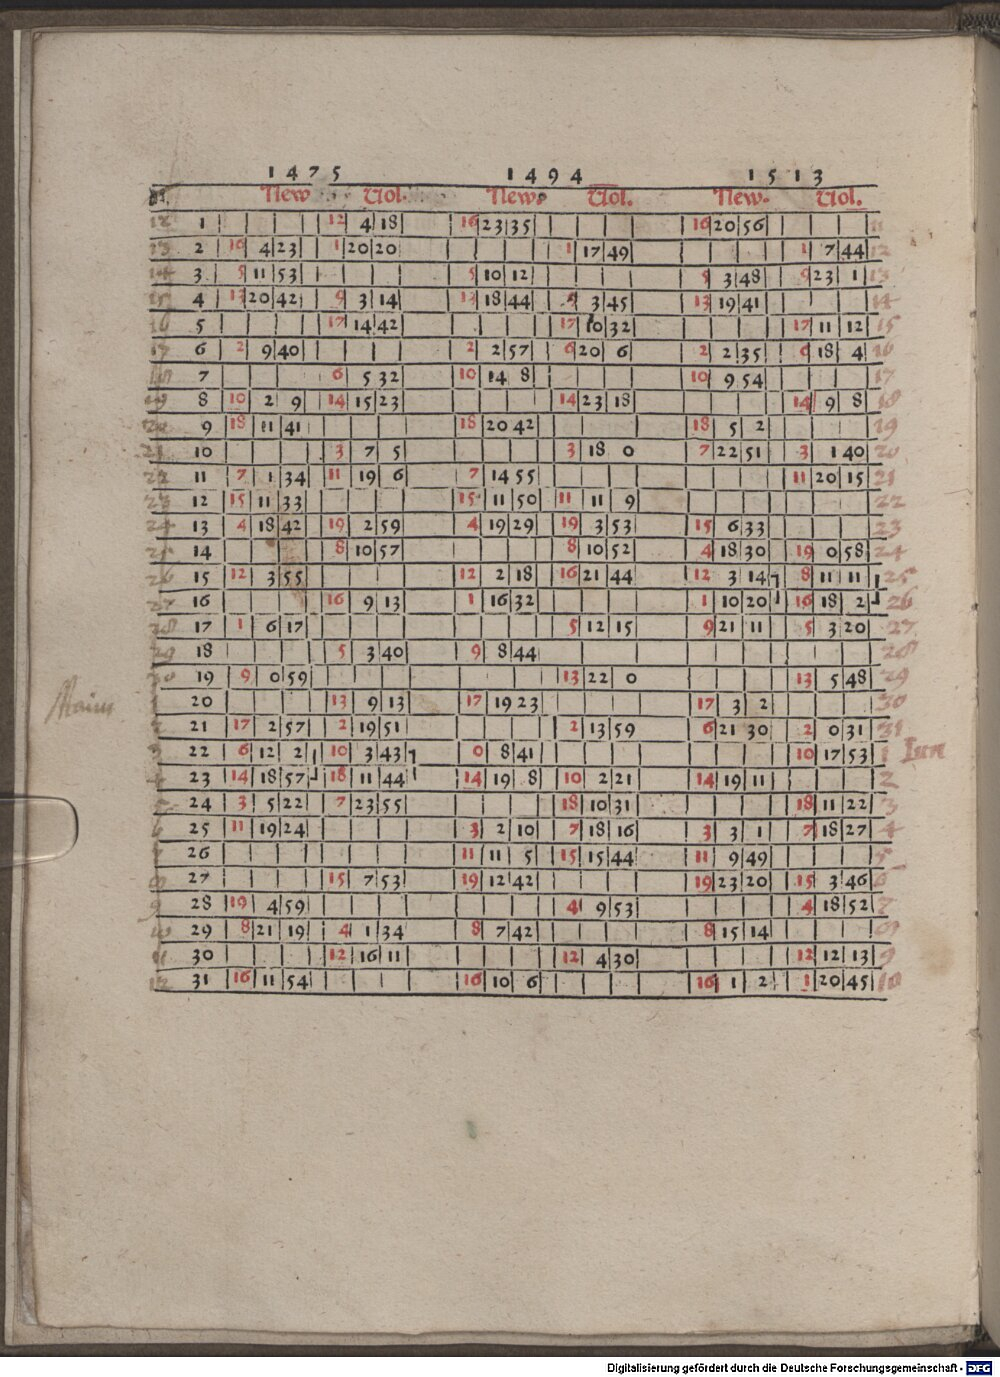 1475 1494 1513
New Vol. New. Vol. New. Vol.
12 1 12 4 18 16 23 35 16 20 56 11
13 2 16 4 23 1 20 20 1 17 49 1 7 44 12
14 3 5 11 53 5 10 12 5 3 48 9 23 1 13
15 4 13 20 42 9 3 14 13 18 44 9 3 45 13 19 41 14
16 5 17 14 42 17 10 32 17 11 12 15
17 6 2 9 40 2 2 57 6 20 6 2 2 35 6 18 4 16
7 6 5 32 10 14 8 10 9 54 17
19 8 10 2 9 14 15 23 14 23 18 14 9 8 18
20 9 18 11 41 18 20 42 18 5 2 19
21 10 3 7 5 3 18 0 7 22 51 3 1 40 20
22 11 7 1 34 11 19 6 7 14 55 11 20 15 21
23 12 15 11 33 15 11 50 11 11 9 22
24 13 4 18 42 19 2 59 4 19 29 19 3 53 15 6 33 23
25 14 8 10 57 8 10 52 4 18 30 19 0 58 24
26 15 12 3 55 12 2 18 16 21 44 12 3 14 8 11 11 25
27 16 16 9 13 1 16 32 1 10 20 16 18 2 26
28 17 1 6 17 5 12 15 9 21 11 5 3 20 27
29 18 5 3 40 9 8 44 28
30 19 9 0 59 13 22 0 13 5 48 29
20 13 9 13 17 19 23 17 3 2 30
Maius
21 17 2 57 2 19 51 2 13 59 6 21 30 2 0 31 31
22 6 12 2 10 3 43 0 8 41 10 17 53 1 Iun
23 14 18 57 18 11 44 14 19 8 10 2 21 14 19 11 2
24 3 5 22 7 23 55 18 10 31 18 11 22 3
25 11 19 24 3 2 10 7 18 16 3 3 1 7 18 27 4
26 11 11 5 15 15 44 11 9 49 5
27 15 7 53 19 12 42 19 23 20 15 3 46 6
28 19 4 59 4 9 53 4 18 52 7
29 8 21 19 4 1 34 8 7 42 8 15 14 8
30 12 16 11 12 4 30 12 12 13 9
12 31 16 11 54 16 10 6 16 1 2 1 20 45 10
Digitalisierung gefördert durch die Deutsche Forschungsgemeinschaft - DFG